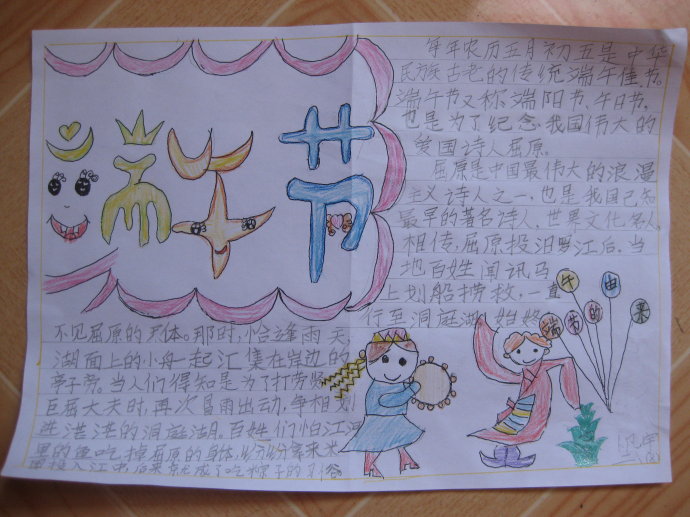 端午节
年年农历五月初五是中华
民族古老的传统端午佳节。
端午节又称端阳节、午日节,
也是为了纪念我国伟大的
爱国诗人屈原。
屈原是中国最伟大的浪漫
主义诗人之一,也是我国已知
最早的著名诗人,世界文化名人,
相传,屈原投汨罗江后,当
地百姓闻讯马
上划船捞救,一直
行至洞庭湖,始终
端午节的由来
不见屈原的尸体。那时,恰逢雨天,
湖面上的小舟一起汇集在岸边的
亭子旁。当人们得知是为了打劳贤
臣屈大夫时,再次冒雨出动,争相划
进茫茫的洞庭湖。百姓们怕江河
里的鱼吃掉屈原的身体,纷纷拿来米
投入江中,后来就成了吃粽子的习俗